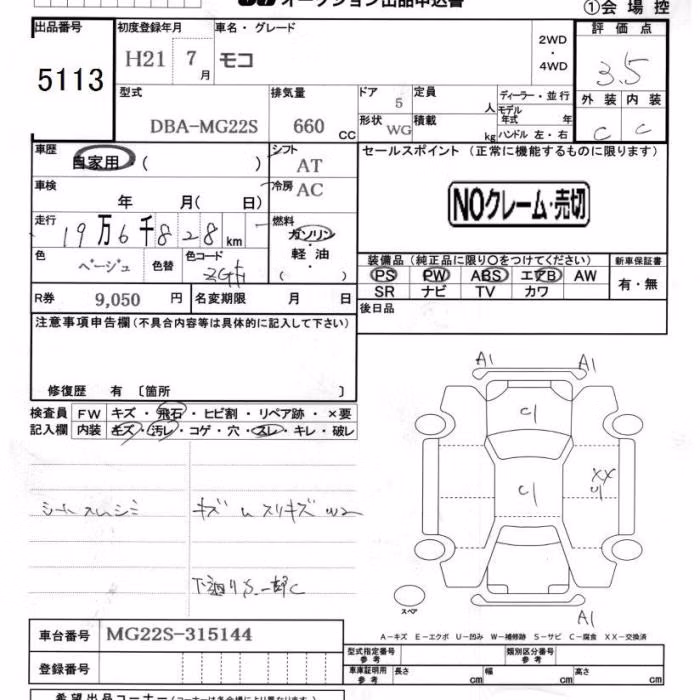 オークション出品申込書
①会場控
出品番号
5113
初度登録年月
H21 7月
車名・グレード
モコ
2WD
・
4WD
評価点
3.5
外装 内装
C C
型式
DBA-MG22S
排気量
660 CC
ドア 5
形状 WG
定員 人
積載 kg
ディーラー・並行
モデル年式 年
ハンドル 左・右
車歴
自家用 ( )
シフト
AT
車検
年 月( 日)
冷房 AC
走行
19万6千828km
燃料
ガソリン
・
軽油
( )
色
ベージュ
色替
色コード
R券 9,050 円
名変期限 月 日
セールスポイント (正常に機能するものに限ります)
NOクレーム・売切
装備品(純正品に限り〇をつけてください)
PS PW ABS エアB AW
SR ナビ TV カワ
新車保証書
有・無
後日品
注意事項申告欄(不具合内容等は具体的に記入して下さい)
修復歴 有〔箇所 〕
検査員
記入欄
FW キズ・飛石・ヒビ割・リペア跡・×要
内装 キズ・汚レ・コゲ・穴・スレ・キレ・破レ
A1 A1
C1
C1
XX
U1
A1
スペア
A-キズ E-エクボ U-凹み W-補修跡 S-サビ C-腐食 XX-交換済
車台番号 MG22S-315144
登録番号
型式指定番号
参考
類別区分番号
参考
車庫証明用
参考
長さ cm
幅 cm
高さ cm
希望出品コーナー